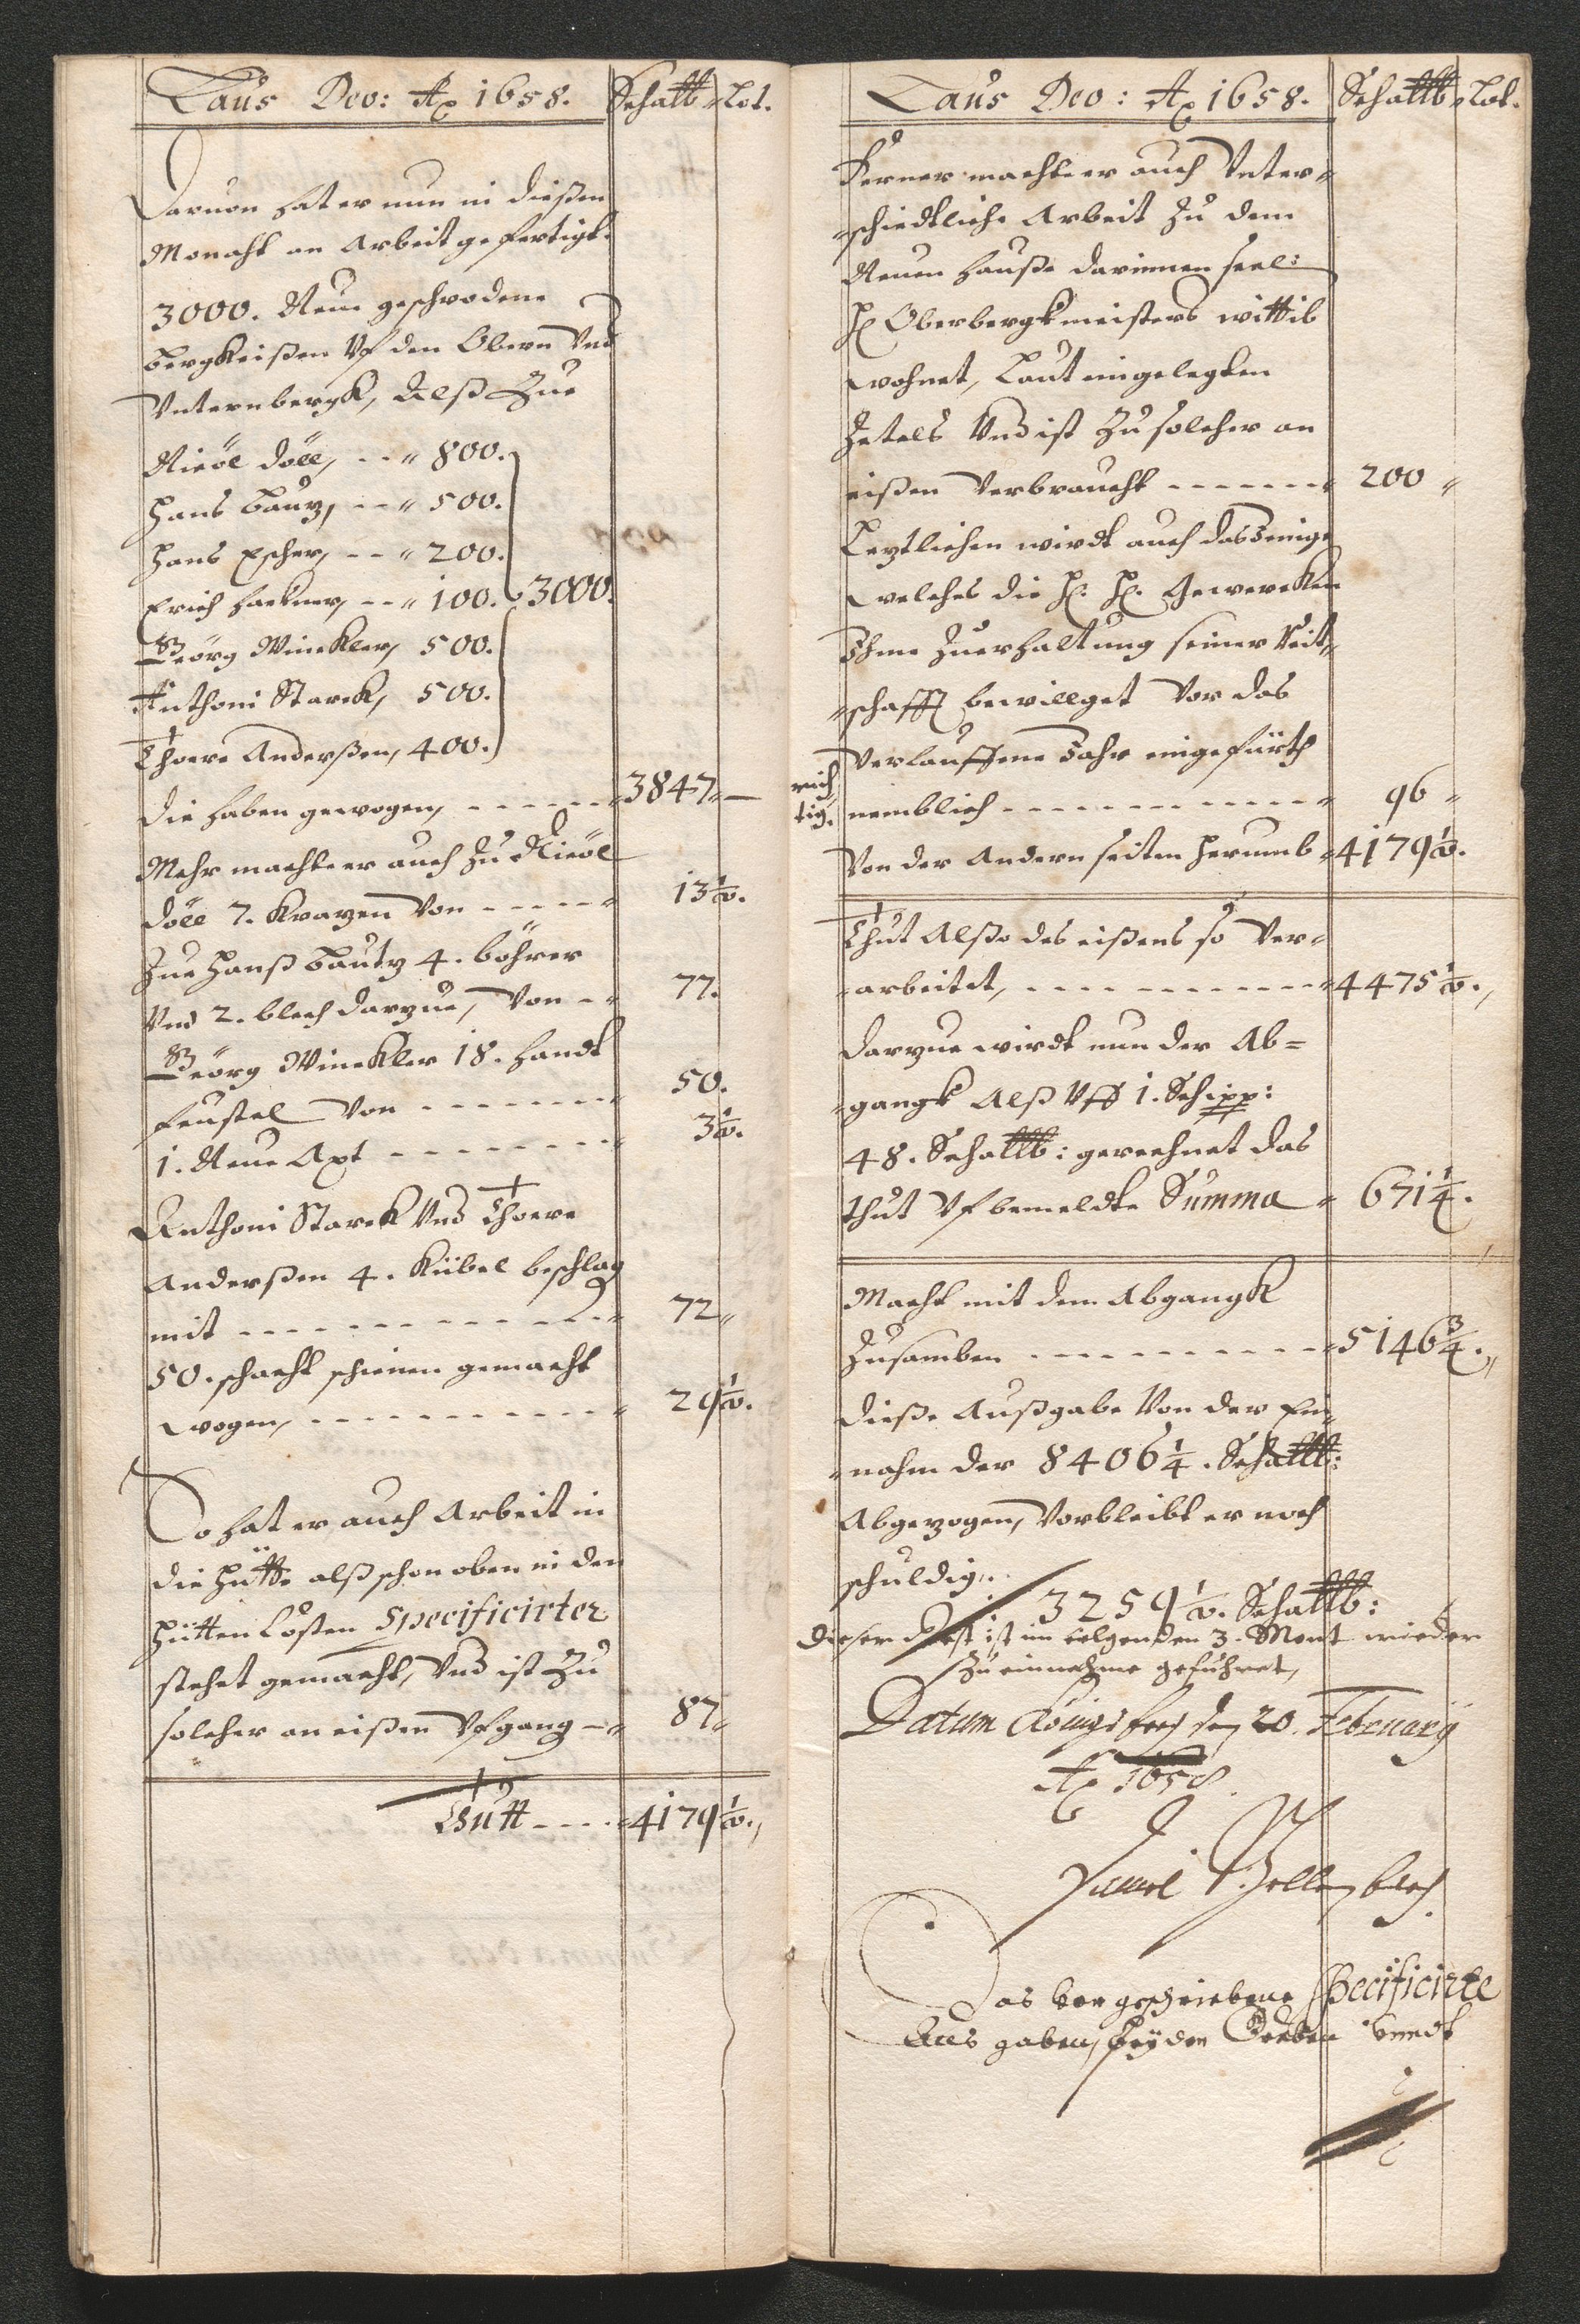 Laus Deo: Ao 1658. Schal℔ Lot.
Daruon hat er nun in dießen
Monaht an Arbeit gefertigt.
3000. Neue geschrodene
Bergkeißen Vf den Obern Vnd
Vnternbergk, Alß Zue
Nicöl Döll, -- " 800.
Hans Bauz, -- " 500.
Hans Escher, -- " 200.
Erich Hackner, -- " 100. 3000.
Geörg Winckler, 500.
Anthoni Starck, 500.
Thoere Anderßen, 400.
die haben gewogen, ------ " 3847 " —
Mehr machte er auch Zu Nicöl
Döll 7. Krazen Von ----- " 13 1/2.
Zue Hanß Bautz 4. böhrer
Vnd 2. blech darzue, Von -- " 77.
Geörg Winckler 18. handt
feustel Von ------- " 50.
1. Neue Axt ------- " 3 1/2.
Anthoni Starck Vnd Thoere
Anderßen 4. Kübel beschlag
mit ------------ " 72 "
50. schacht schienen gemacht
wogen, ---------- " 29 1/2.
So hat er auch Arbeit in
die Hütte alß schon oben in den
Hütten Costen Specificirter
stehet gemacht, Vnd ist Zu
solcher an eißen Vfgang -- " 87 "
Thutt ---- " 4179 1/2.
Laus Deo: Ao 1658. Schal℔ Lot.
Ferner machte er auch Vnter-
-schiedtliche Arbeit Zu dem
Neuen hauße darinnen seel:
H Oberbergkmeisters wittib
wohnet, Laut eingelegten
Zetels Vnd ist Zu solcher an
eißen Verbraucht ------- " 200 "
Leztlichen wirdt auch dasJenige
welches die H. H. Gewercken
Ihme Zuerhaltung seiner
-schafft bewillget Vor das
Verlauffene Jahr eingefürth
rich
tig. nemblich ------------ " 96 "
Von der Andern seiten herumb " 4179 1/2.
Thut Alßo des eißens so Ver-
-arbeitet, ------------ " 4475 1/2.
Darzue wirdt nun der Ab=
-gangk Alß Vff 1. Schipp:
48. Schal℔: gerechnet das
thut Vf bemeldte Summa " 671 1/4.
Macht mit dem Abgangk
Zusamben ----------- " 5146 3/4.
Dieße Außgabe Von der Ein
-nahm der 8406 1/4. Schal℔:
Abgezogen, Vorbleibt er noch
schuldig,.
3259 1/2. Schal℔:
Dieser Rest ist im folgenden 3. Mont wieder
Zu einnahme geführet,
Datum Königsberg den 20. February
Ao 1658.
Das vor geschriebene Specificirte
Aus gaben, bey der Gruben vnndt